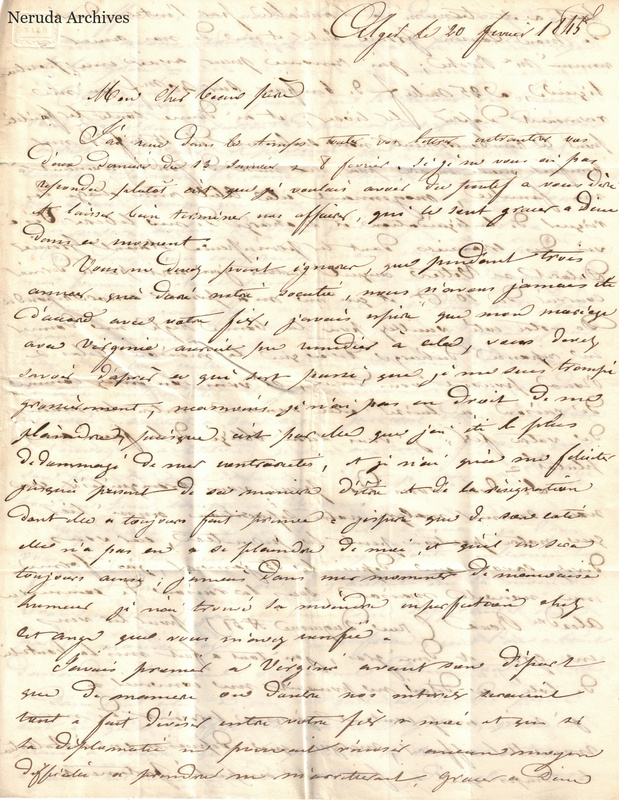 Neruda Archives
Alger le 20 fevrier 1845
Mon cher beau père
J'ai reçu dans le temps toutes vos lettres entr'autres vos
deux dernieres du 12 Janvier & 8 fevrier. Si je ne vous ai pas
repondu plutot c'est que je voulais avoir du positif a vous dire
& laisser bien terminer nos affaires, qui le sont graces a Dieu
dans ce moment.
Vous ne devez point ignorer, que pendant trois
annees qu'a duré notre societé, nous n'avons jamais été
d'accord avec votre fils, j'avais espéré que mon mariage
avec Virginie aurait pu remedier à cela, vous devez
savoir d'après ce qui s'est passé, que je me suis trompé
grossierement, neanmoins je n'ai pas en droit de me
plaindre, puisque c'est par elle que j'ai été le plus
dedommagé de mes contrarietés, et je n'ai qu'a me feliciter
jusqu'a present de sa maniere d'être et de la résignation
dont elle a toujours fait preuve : j'espere que de son coté
elle n'a pas eu a se plaindre de moi, et qu'il en sera
toujours ainsi ; jamais dans mes moments de mauvaise
humeur je n'ai trouvé la moindre imperfection chez
cet ange que vous m'avez confié.
J'avais promis a Virginie avant son départ
que de maniere ou d'autre nos intérets seraient
tout a fait divisés entre votre fils & moi et que si
la diplomatie ne pouvait réussir aucun moyen
difficile a prendre ne m'arreterait, graces a Dieu